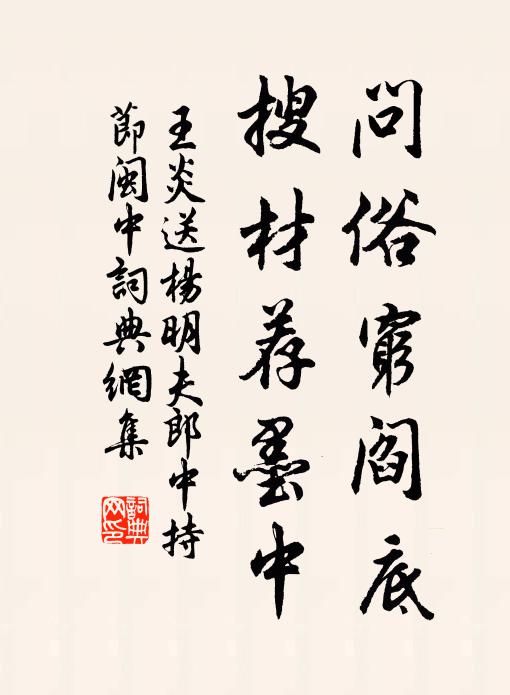 問俗窮閻底
搜材荐墨中
王炎送楊明夫郎中持
節閩中詞典網集
詞典網印